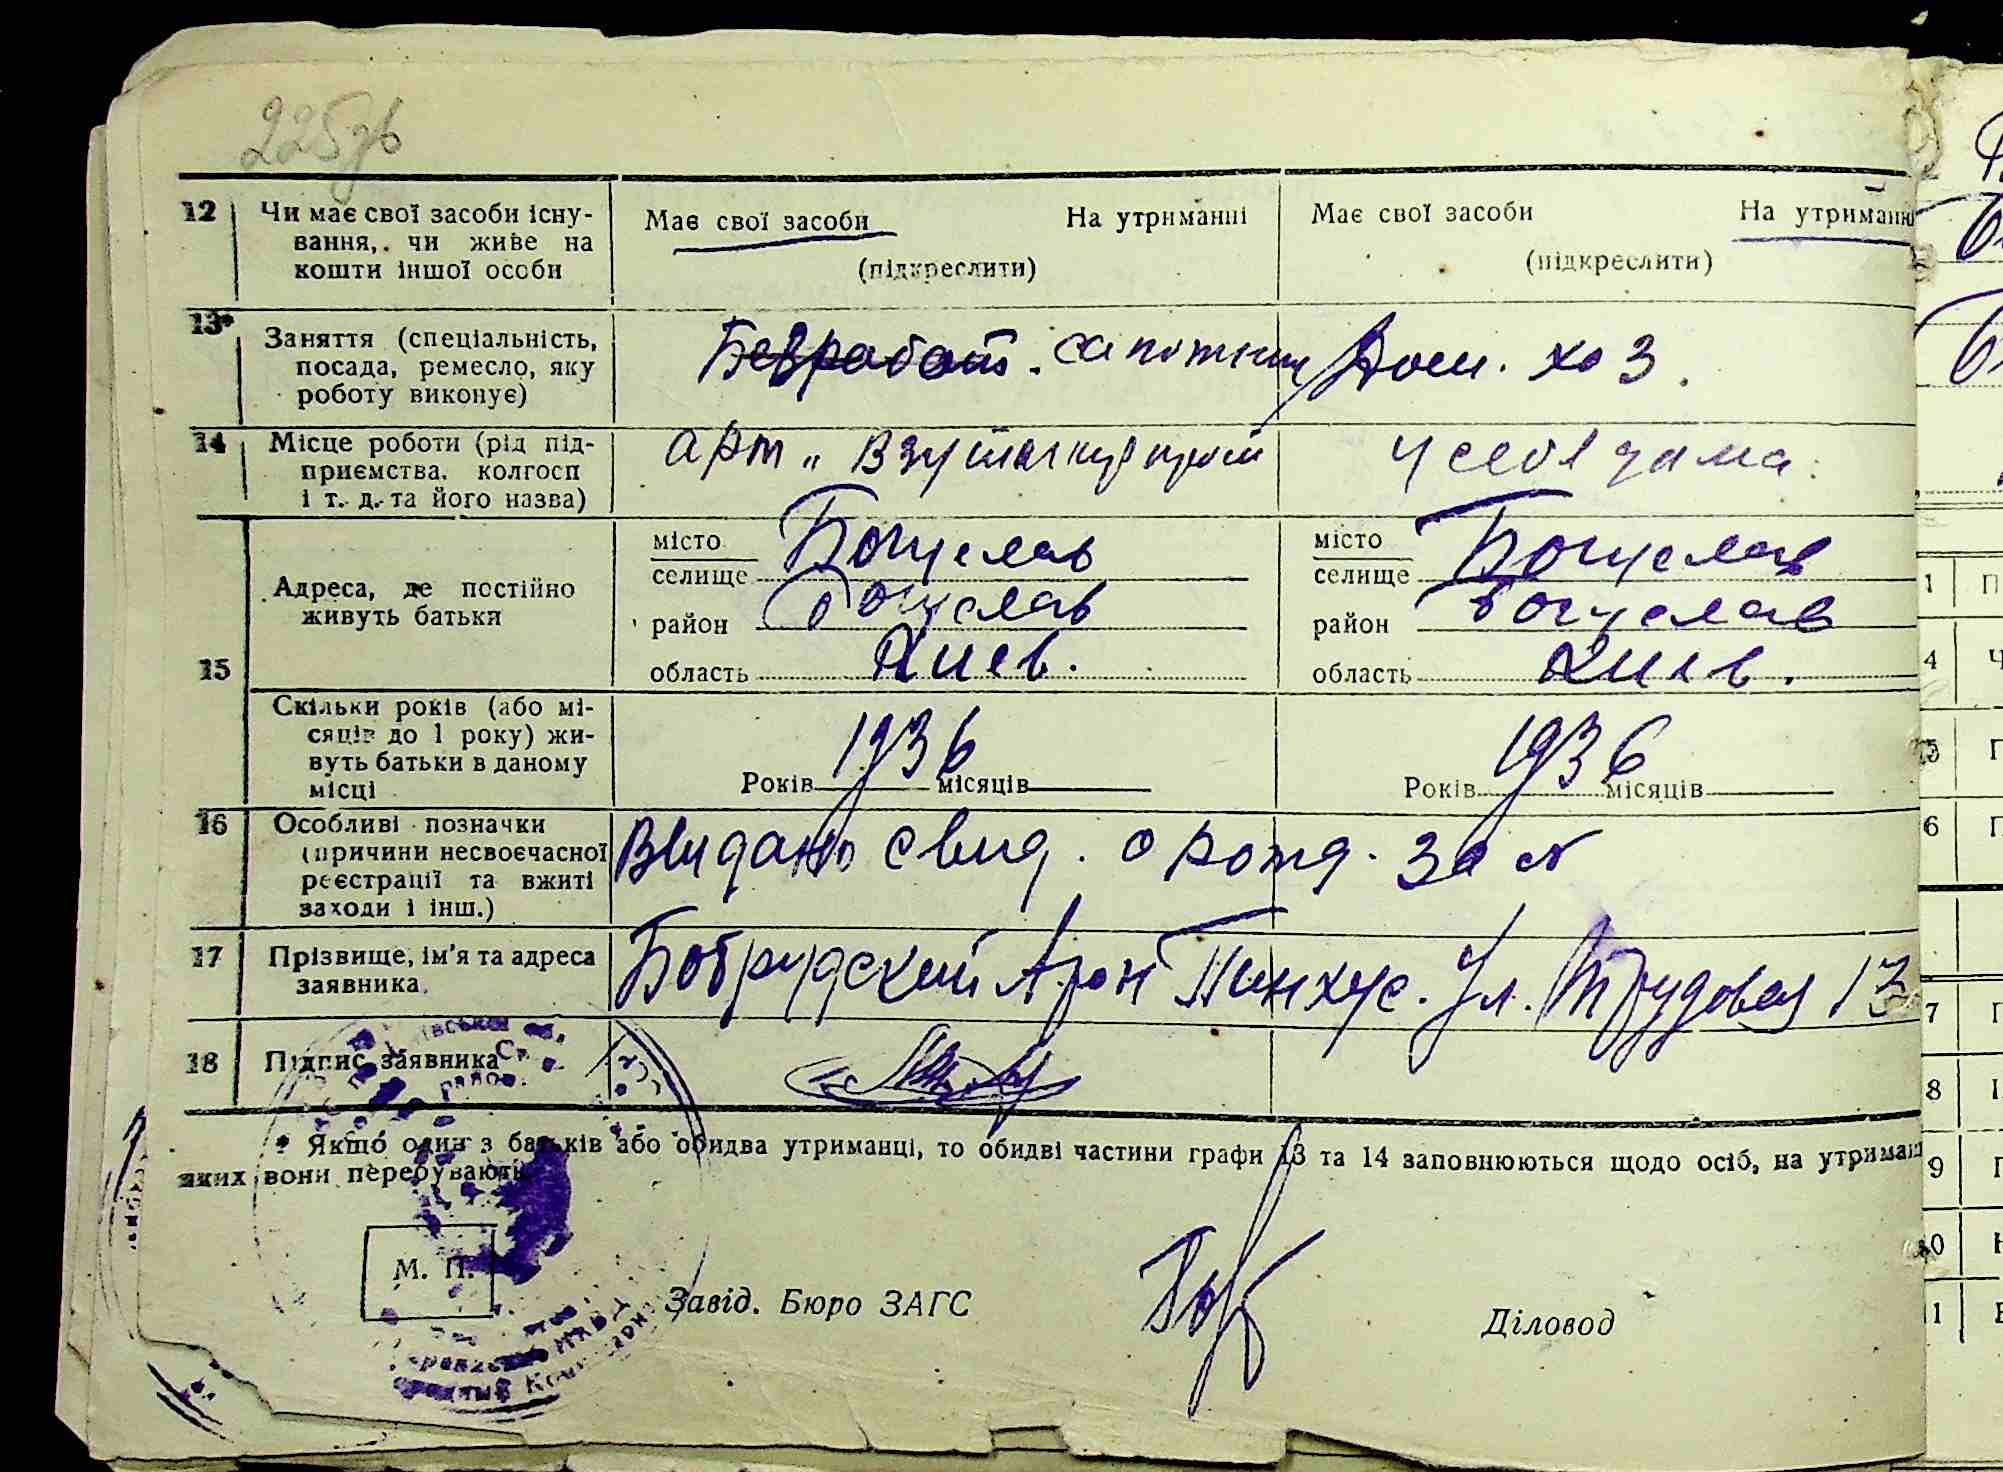 225зв
12 Чи має свої засоби існу-
вання, чи живе на
кошти іншої особи
Має свої засоби На утриманні
(підкреслити)
Має свої засоби На утриманні
(підкреслити)
13* Заняття (спеціальність,
посада, ремесло, яку
роботу виконує)
Безработ. сапожник
Дом. хоз.
14 Місце роботи (рід під-
приємства, колгосп
і т. д. та його назва)
арт „ Взуттєіндпром
у себя дома
15 Адреса, де постійно
живуть батьки
місто
селище Богуслав
район Богуслав
область Киев.
місто
селище Богуслав
район Богуслав
область Киев.
Скільки років (або мі-
сяців до 1 року) жи-
вуть батьки в даному
місці
Років 1936 місяців
Років 1936 місяців
16 Особливі позначки
(причини несвоєчасної
реєстрації та вжиті
заходи і інш.)
Выдано свид. о рожд. за №
17 Прізвище, ім'я та адреса
заявника.
Бобрудский Арон Пинхус. Ул. Трудовая 13
18 Підпис заявника
* Якщо один з батьків або обидва утриманці, то обидві частини графи 13 та 14 заповнюються щодо осіб, на утриман
яких вони перебувають.
М. П.
Завід. Бюро ЗАГС
Діловод
1 П
4 Ч
5 П
6 П
7 П
8 І
9 П
0 Н
1